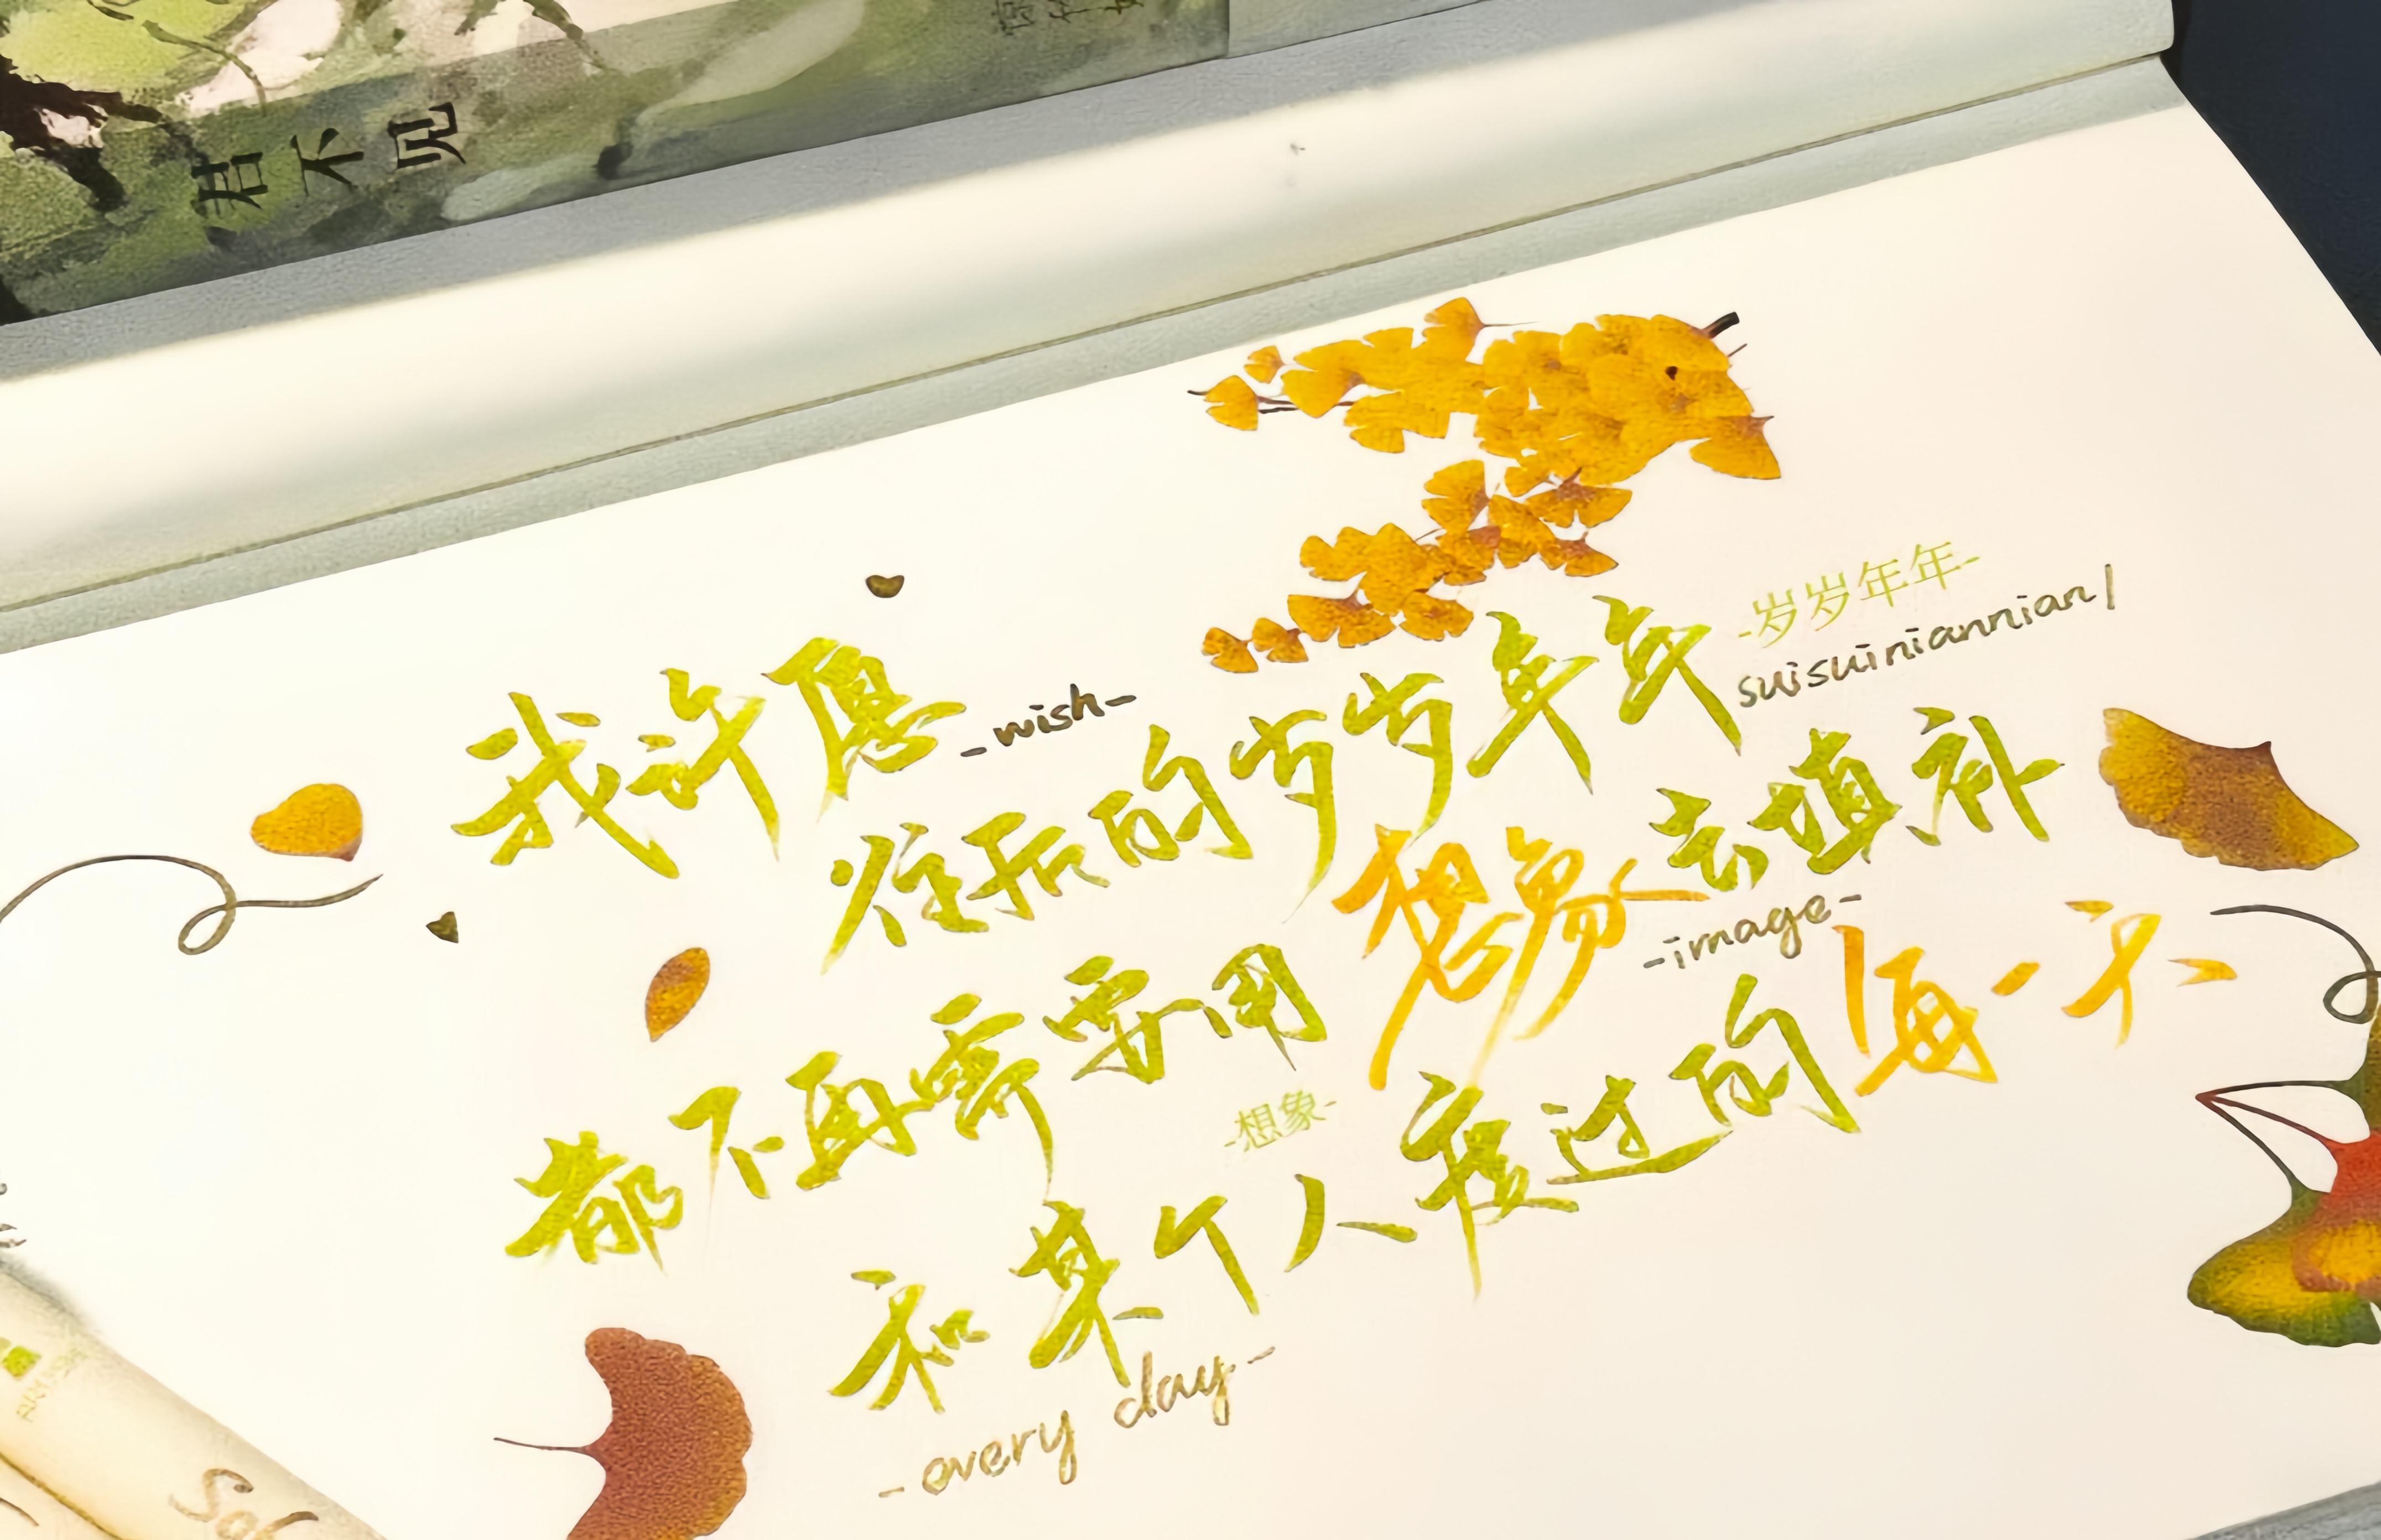 君不见
我许愿
-wish-
往后的岁岁年年
-岁岁年年-
suisuiniannian/
都不再需要用想象去填补
-image-
-想象-
和某个人度过的每一天
-every day-